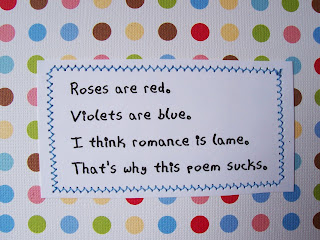 Roses are red.
Violets are blue.
I think romance is lame.
That's why this poem sucks.